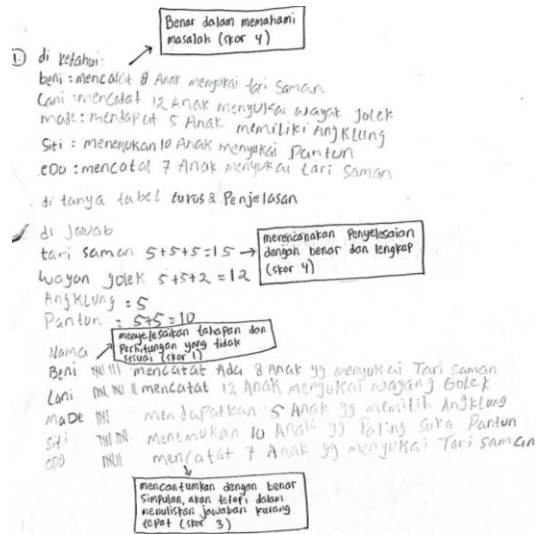 Benar dalam memahami
masalah (skor 4)
1. di ketahui:
beni : mencatat 8 Anak menyukai tari Saman
Lani : mencatat 12 Anak menyukai wayak Jolek
made : mendapat 5 Anak memiliki Angklung
Siti : menemukan 10 Anak menyukai Pantun
eDo : mencatat 7 Anak menyukai tari Saman
di tanya tabel turus & Penjelasan
di Jawab
tari saman 5+5+5=15
merencanakan Penyelesaian
dengan benar dan lengkap
(skor 4)
wayan golek 5+5+2 = 12
Angklung : 5
Pantun : 5+5=10
menyelesaikan tahapan dan
Perhitungan yang tidak
sesuai (skor 1)
Nama
Beni mencatat Ada 8 Anak yg menyukai Tari Saman
Lani mencatat 12 Anak menyukai wayang Golek
maDe mendapatkan 5 Anak yg memilih Angklung
Siti menemukan 10 Anak yg Paling Suka Pantun
eDO mencatat 7 Anak yg menyukai Tari Saman
mencantumkan dengan benar
Simpulan, akan tetapi dalam
menuliskan jawaban kurang
tepat (skor 3)